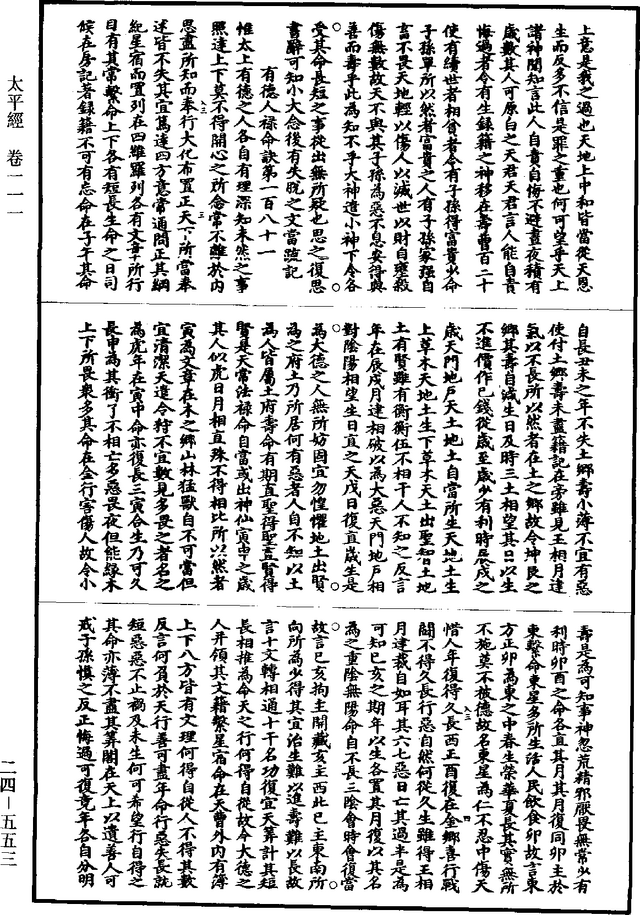 上意是我之過也天地上中和皆當從天恩
生而反多不信是罪之重也何可望乎天上
諸神聞知言此人自責自悔不避晝夜積有
歲數其人可原白之天君天君言人能自責
悔過者令有生錄籍之神移在壽曹百二十
使有續世者相貧者令有子孫得富貴少命
子孫單所以然者富貴之人有子孫家強自
畜不畏天地輕以傷人以滅世以財自壅殺
傷無數故天不與其子孫為惡不息安得與
善而壽乎此為知不乎大神遣小神下令各
受其命長短之事從出無所疑也思之復思
書辭可知小大念後有失脫之文當隨記
有德人祿命訣第一百八十一
惟太上有德之人各自有理深知未然之事
照達上下莫不得開心之所念常不離於內
思盡所知而奉行大化布置正天下所當奉
述皆不失其宜篤達四方意常通問正其綱
紀星宿而置列在四維羅列各有文章所行
目有其常繫命上下各有短長生命之日司
候在房記著錄籍不可有忘命在子午其命
自長丑未之年不失土鄉壽小薄不宜有惡
使付土鄉壽未盡籍記在旁雖見王相月建
氣以不長所以然者在土之鄉故令坤艮之
鄉其壽自減生日及時三土相望其口以生
不進價作已錢從歲至歲少有利時辰戌之
歲天門地戶天土地土自當所生天地土生
上草木天地土生下草木天土出聖智土地
土有賢雖有衡衡伍不相干人不知之反言
年在辰戌月建相破以為大惡天門地戶相
對陰陽相望生日直之天戊日復直歲生是
為大德之人無所妨固宜勿惶懼地土出賢
為之府土乃所居何有惡者人自不知以土
為人皆屬土府壽命有期直聖得聖直賢得
賢是天常法祿命自當或出神仙寅申之歲
其人似虎日月相直殊不得相比所以然者
寅為文章在木之鄉山林猛獸自不可當但
宜清潔天遣令狩不宜數見多畏之者名之
為虎年在寅申命亦復長三寅合生乃可久
長申為其衝了不相亡多惡畏夜但能緣木
上下所畏眾多其命在金行害傷人故令小
壽是為可知事神忽荒精邪厭畏無常少有
利時卯酉之命各直其月其月復同卯主於
東繫命東星多所生活人民飲食卯故言東
方正卯為東之中春生榮華夏長其實無所
不施莫不被德故名東星為仁不忍中傷天
惜人年復得久長西正酉復在金鄉喜行戰
鬪不得久長行惡自然何從久生雖得王相
月建裁自如耳其六七惡日亡其過半是為
可知巳亥之期年以生各置其月復以其名
為之重陰無陽命自不長三陰會時會復當
故言巳亥拘主開藏亥主西北巳主東南所
向所為少得其宜治生難以進壽難以長故
言十文轉相通十干名功復宜天算計其短
長相推為命天之行何得自從故令大德之
人并領其文籍繫星宿命在天曹外內有簿
上下八方皆有文理何得自從人不得其數
反言何負於天行善可盡年命行惡失長就
短惡惡不止禍及未生何可希望行自得之
其命亦薄不盡其算閣在天上以遺善人可
戒子孫慎之反正悔過可復竟年各自分明
太平經 卷一一一
二四—五五三